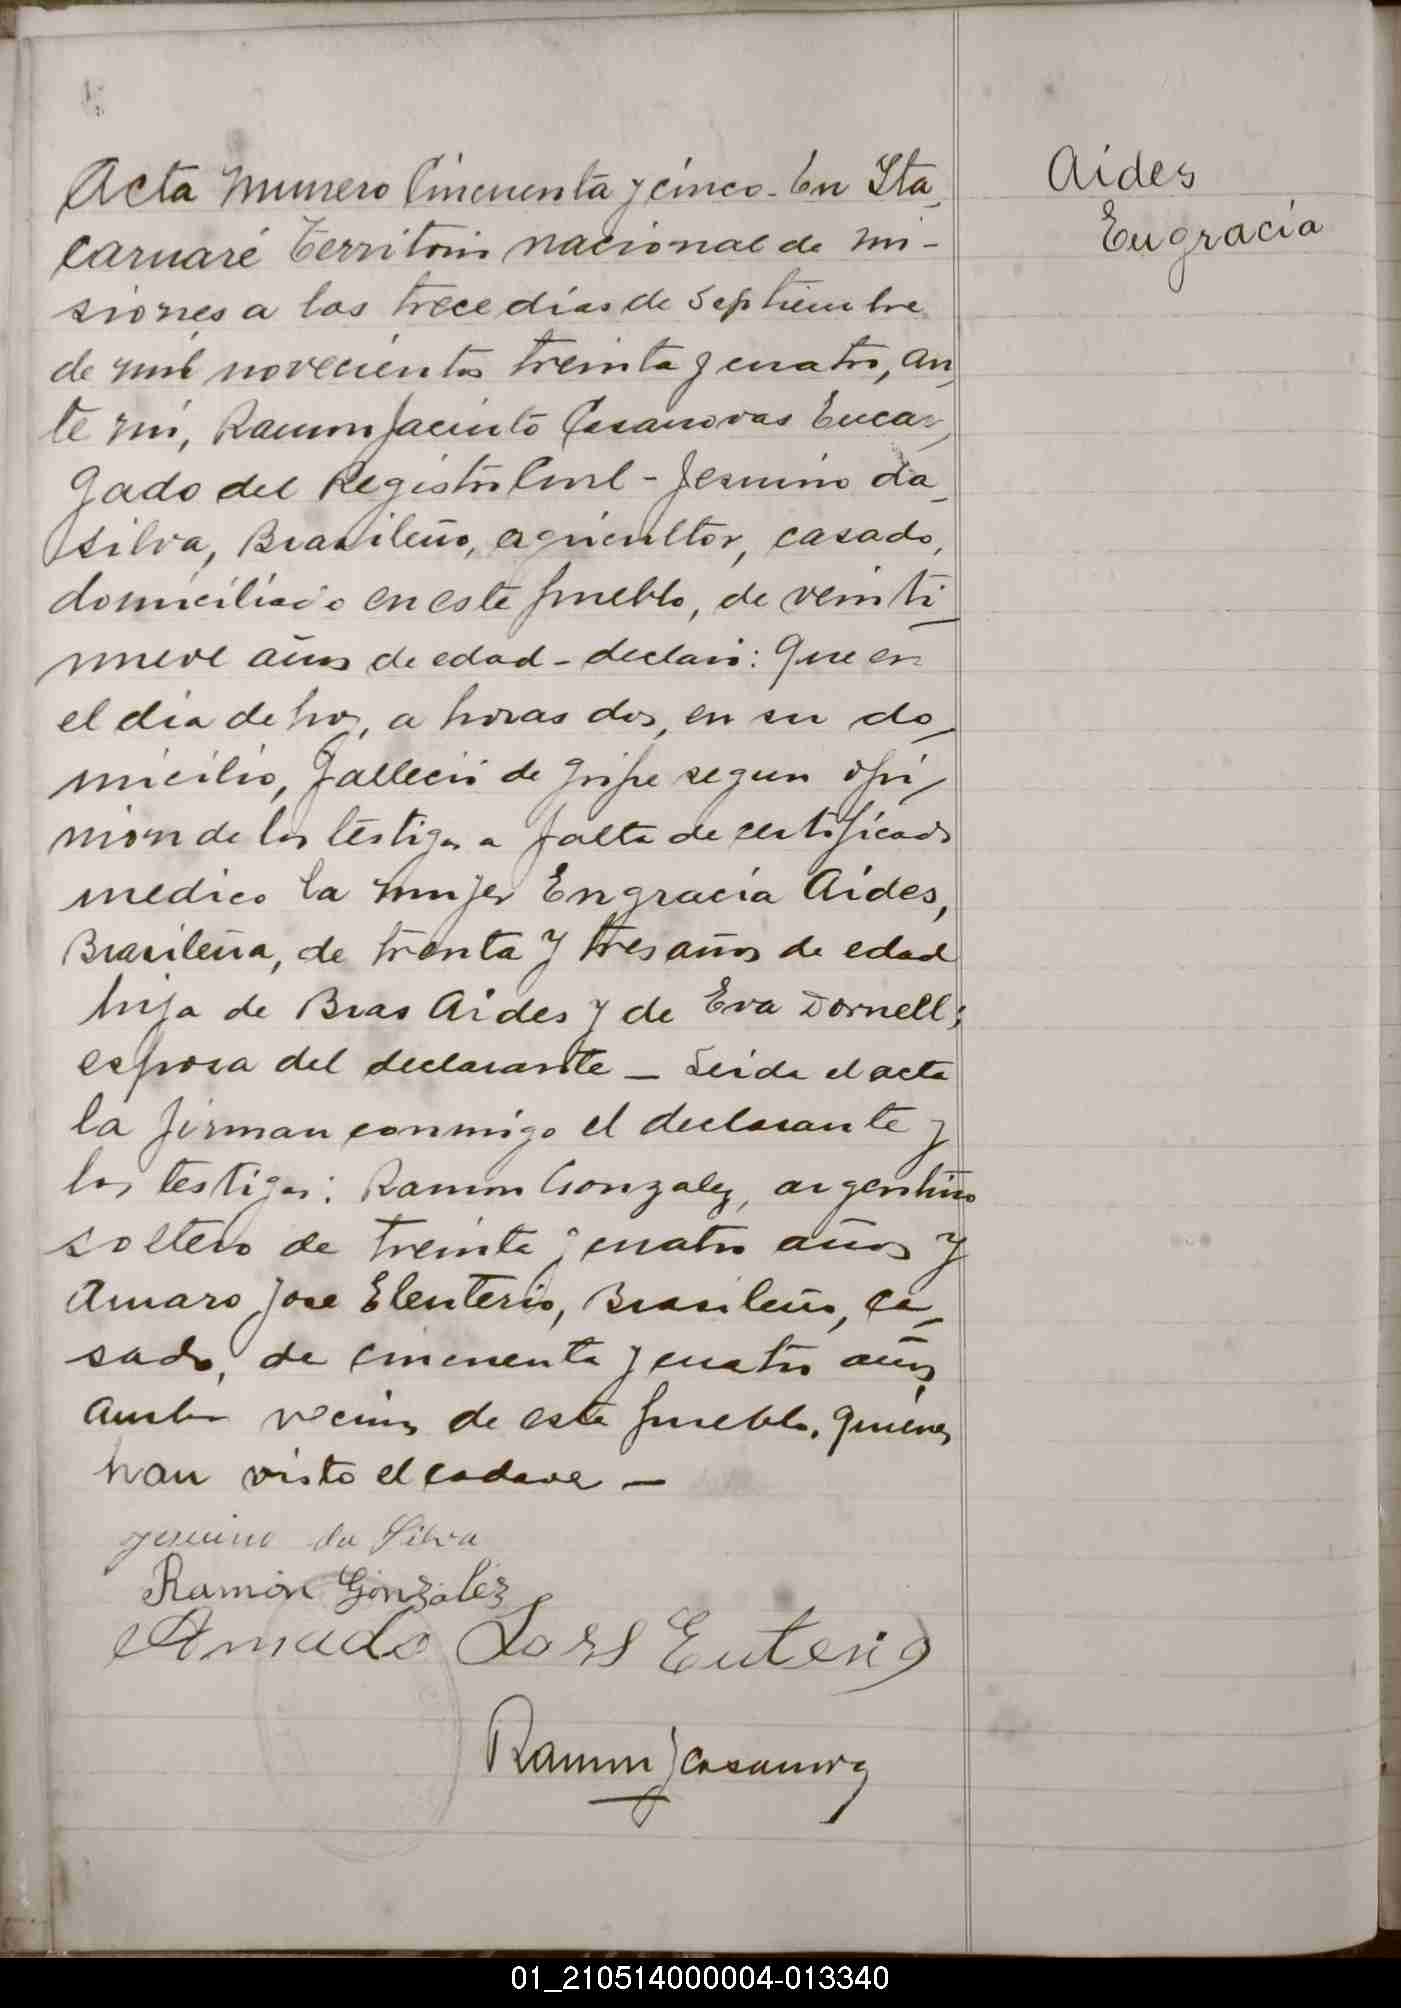 Acta Numero Cincuenta y cinco. En Ita
caruaré Territorio nacional de Mi-
siones a los trece días de Septiembre
de mil novecientos treinta y cuatro, an
te mi, Ramon Jacinto Casanovas Encar
gado del Registro Civil - Jesuino da
silva, Brasileño, agricultor, casado,
domiciliado en este pueblo, de veinti
nueve años de edad - declaró: Que en
el día de hoy, a horas dos, en su do
micilio, falleció de gripe segun opi
nion de los testigos a falta de certificado
medico la mujer Engracia Aides,
Brasileña, de trenta y tres años de edad
hija de Bras Aides y de Eva Dornell;
esposa del declarante - Leida el acta
la firman conmigo el declarante y
los testigos: Ramon Gonzalez, argentino
soltero de treinta y cuatro años y
Amaro Jose Eleuterio, Brasileño, ca
sado, de cincuenta y cuatro años,
ambos vecinos de este pueblo. quienes
han visto el cadaver -
Jesuino da Silva
Ramón González
Amado Euterio
Ramon J Casanova
Aides
Engracia
01_210514000004-013340